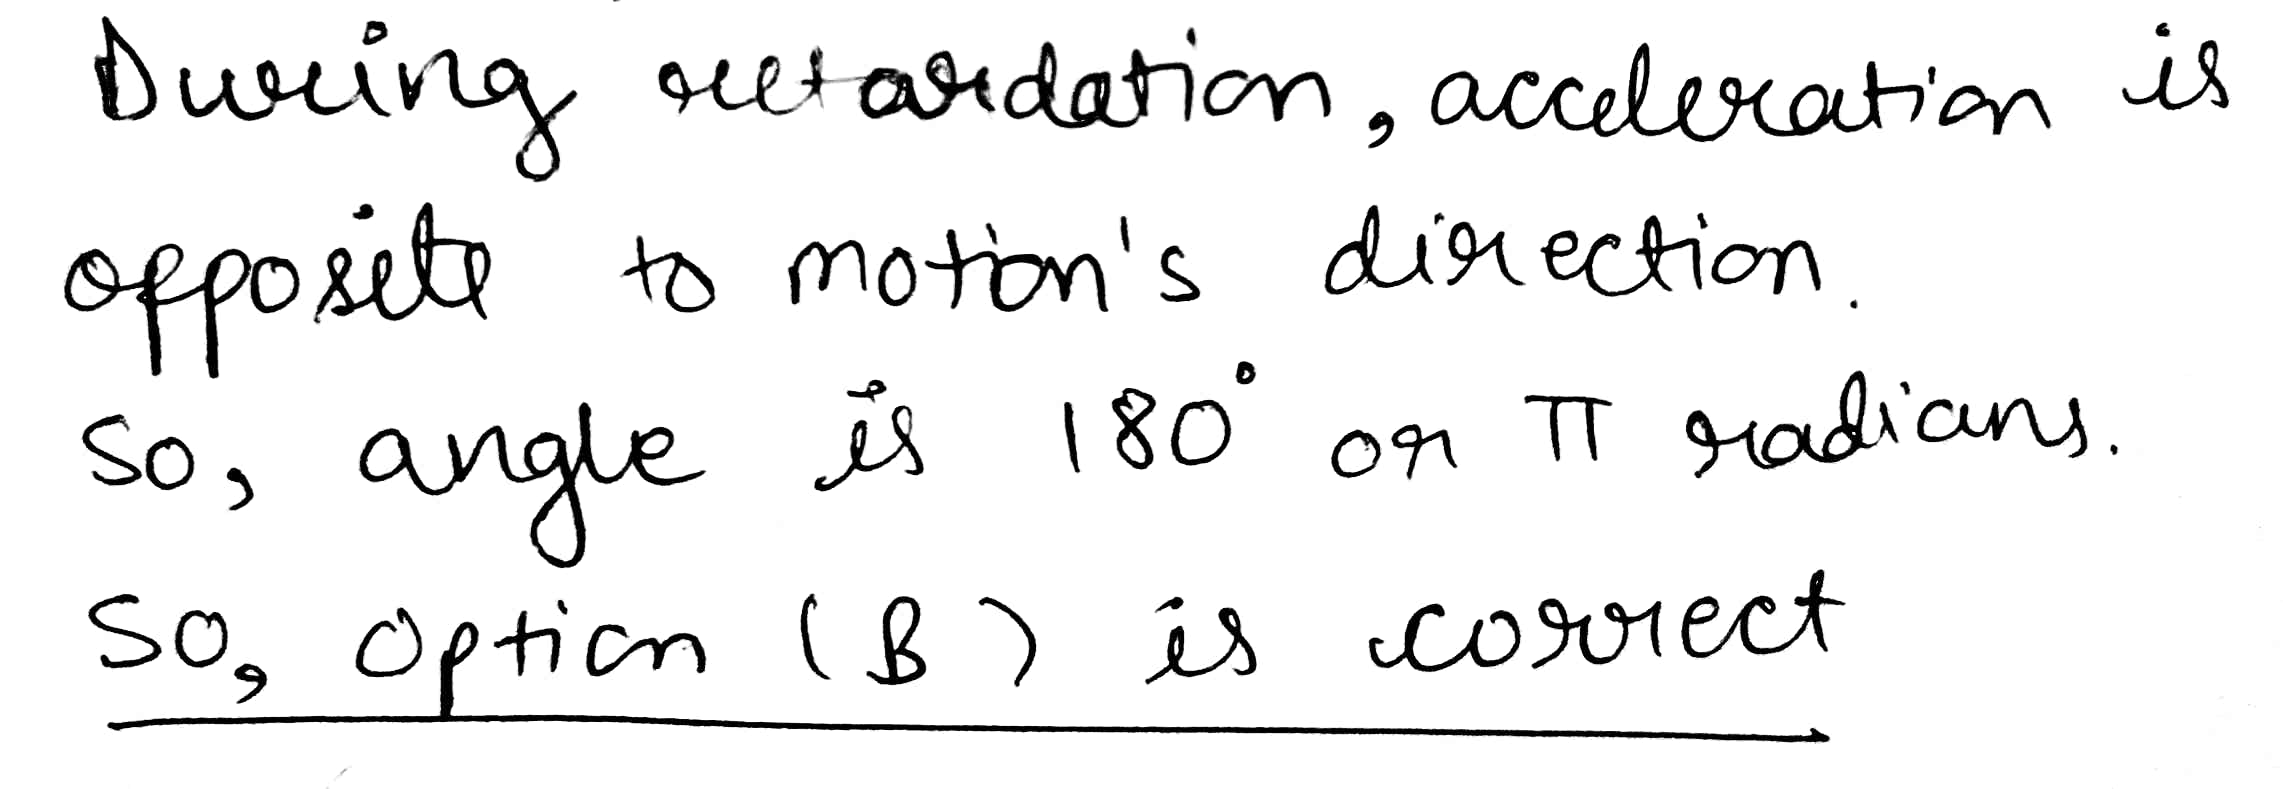 During retardation, acceleration is
opposite to motion's direction.
So, angle is 180° or π radians.
So, Option (B) is correct